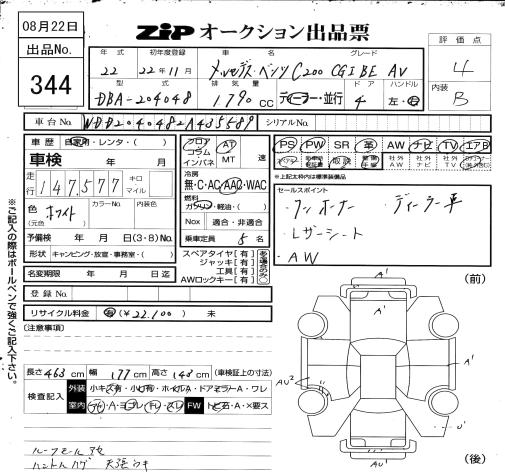 08月22日
ZiP オークション出品票
出品No.
344
年式 初年度登録 車名 グレード
22 22年11月 メルセデス・ベンツ C200 CGI BE AV
型式 排気量 ドア ハンドル
DBA-204048 1790 CC ディーラー・並行 4 左・右
評価点
4
内装
B
車台No. WDD2040482A435589 シリアルNo.
車歴 自家用・レンタ・( )
車検 年 月
走行 147,577 キロ マイル
色 (元色) ホワイト カラーNo. 内装色
予備検 年 月 日(3・8)No.
形状 キャンピング・放宣・事務室・( )
名変期限 年 月 日迄
登録No.
リサイクル料金 有(¥22,100) 未
フロア コラム インパネ AT MT 速
冷房
無・C・AC・AAC・WAC
燃料
ガソリン・軽油・( )
Nox 適合・非適合
乗車定員 5 名
スペアタイヤ[有]
ジャッキ[有]
工具[有]
AWロックキー[有]
PS PW SR 革 AW ナビ TV エアB
取説 社外AW 社外ナビ 社外TV
※上記太枠内は標準装備品
セールスポイント
・ワンオーナー ・ディーラー車
・レザーシート
・AW
※ご記入の際はボールペンで強くご記入下さい。
(注意事項)
長さ 463 cm 幅 177 cm 高さ 143 cm (車検証上の寸法)
検査記入 外装 小キズ有・小凹有・ホイールA・ドアミラーA・ワレ
室内 コゲ・A・ヨゴレ・スレ FW トビ石・A・×要ス
ルーフモール
ハンドルハゲ 天張ウキ
(前)
A'
A'
A'
AU2
A'
AU'
(後)